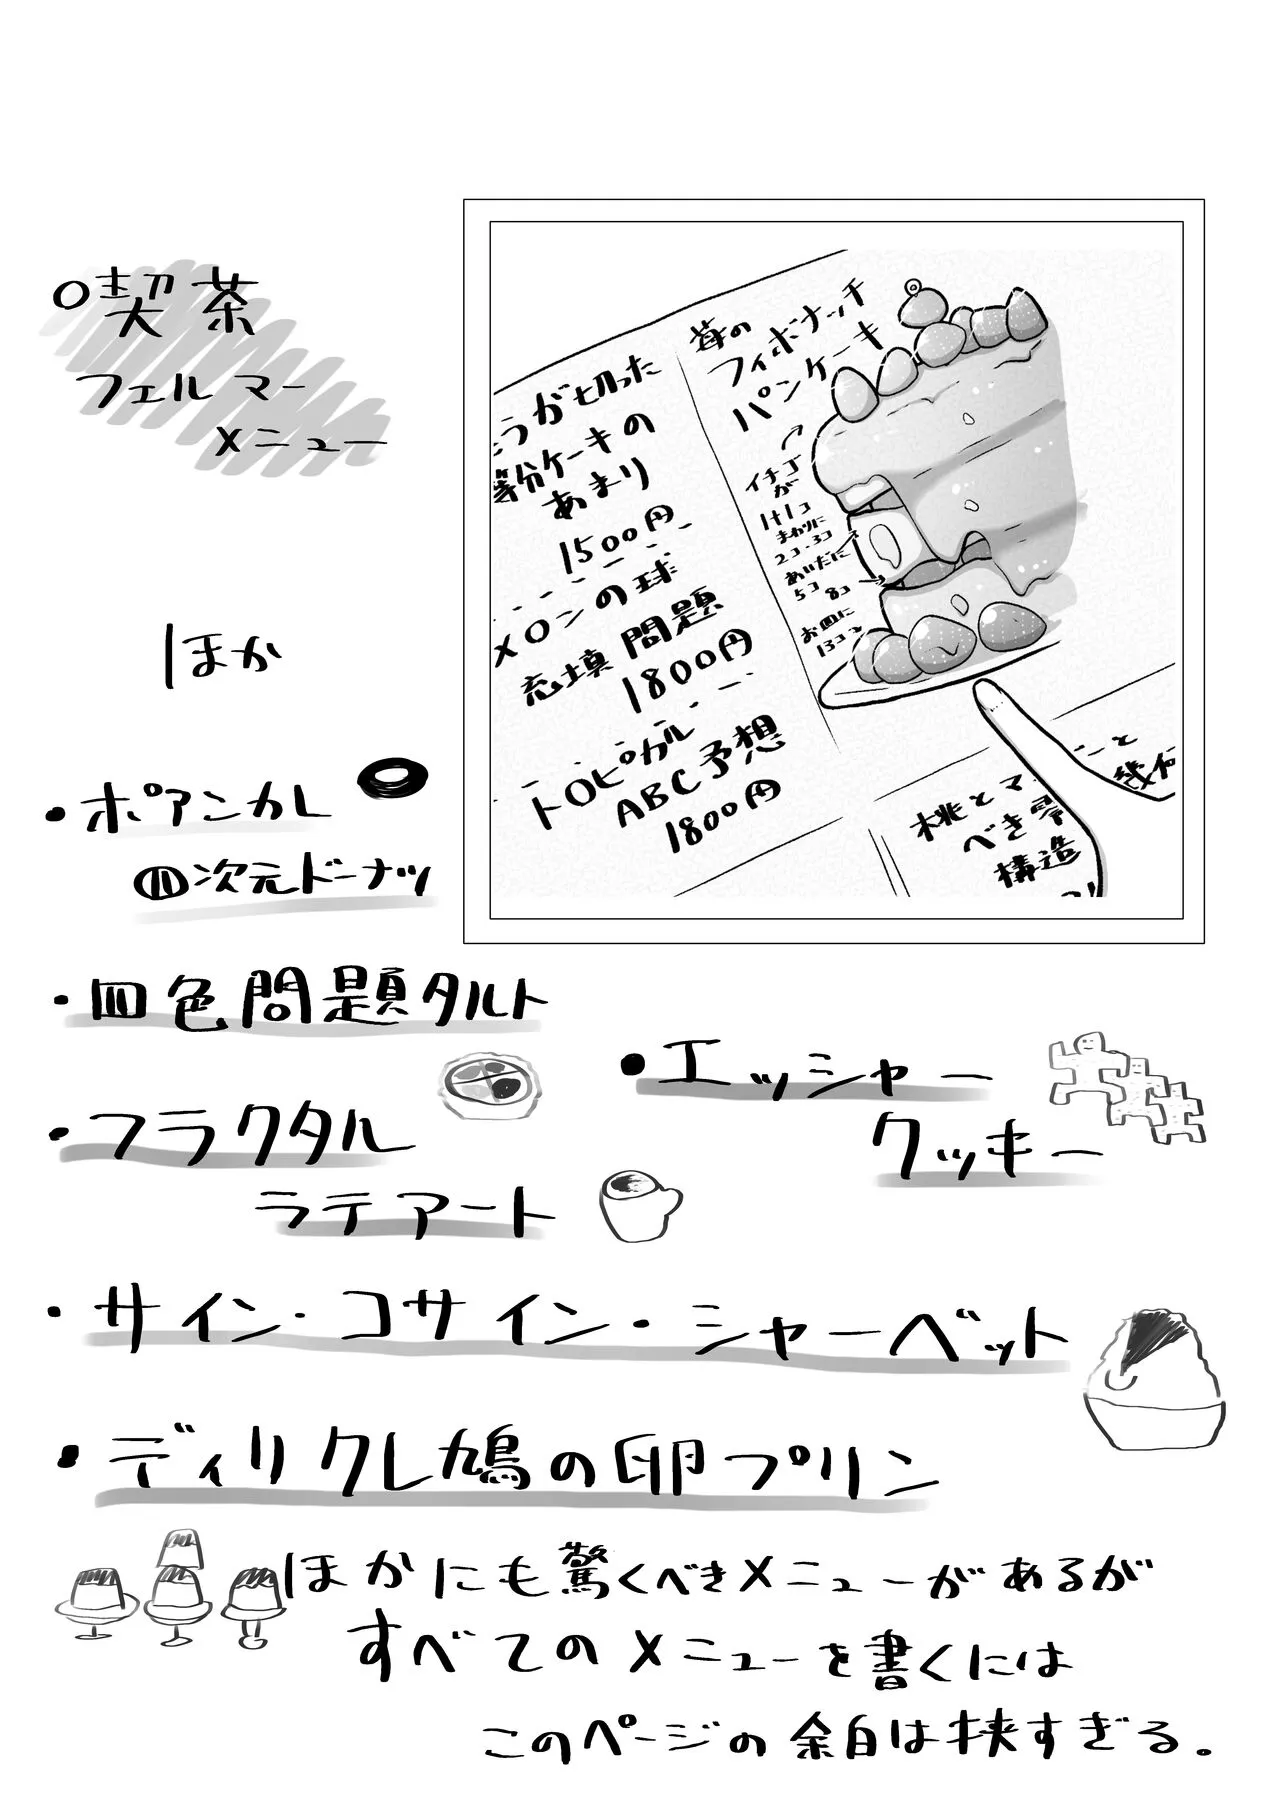 ○喫茶
フェルマー
メニュー
苺の
フィボナッチ
パンケーキ
イチゴ
が
1+1コ
まわりに
2コ・3コ
あいだに
5コ 8コ
お皿に
13コ
うが切った
等分ケーキの
あまり
1500円
メロンの球
充填問題
1800円
トロピカル
ABC予想
1800円
桃とマ
べき零
構造
ーと
幾何
ほか
・ポアンカレ
四次元ドーナツ
・四色問題タルト
・エッシャー
クッキー
・フラクタル
ラテアート
・サイン・コサイン・シャーベット
・ディリクレ鳩の卵プリン
ほかにも驚くべきメニューがあるが
すべてのメニューを書くには
このページの余白は狭すぎる。